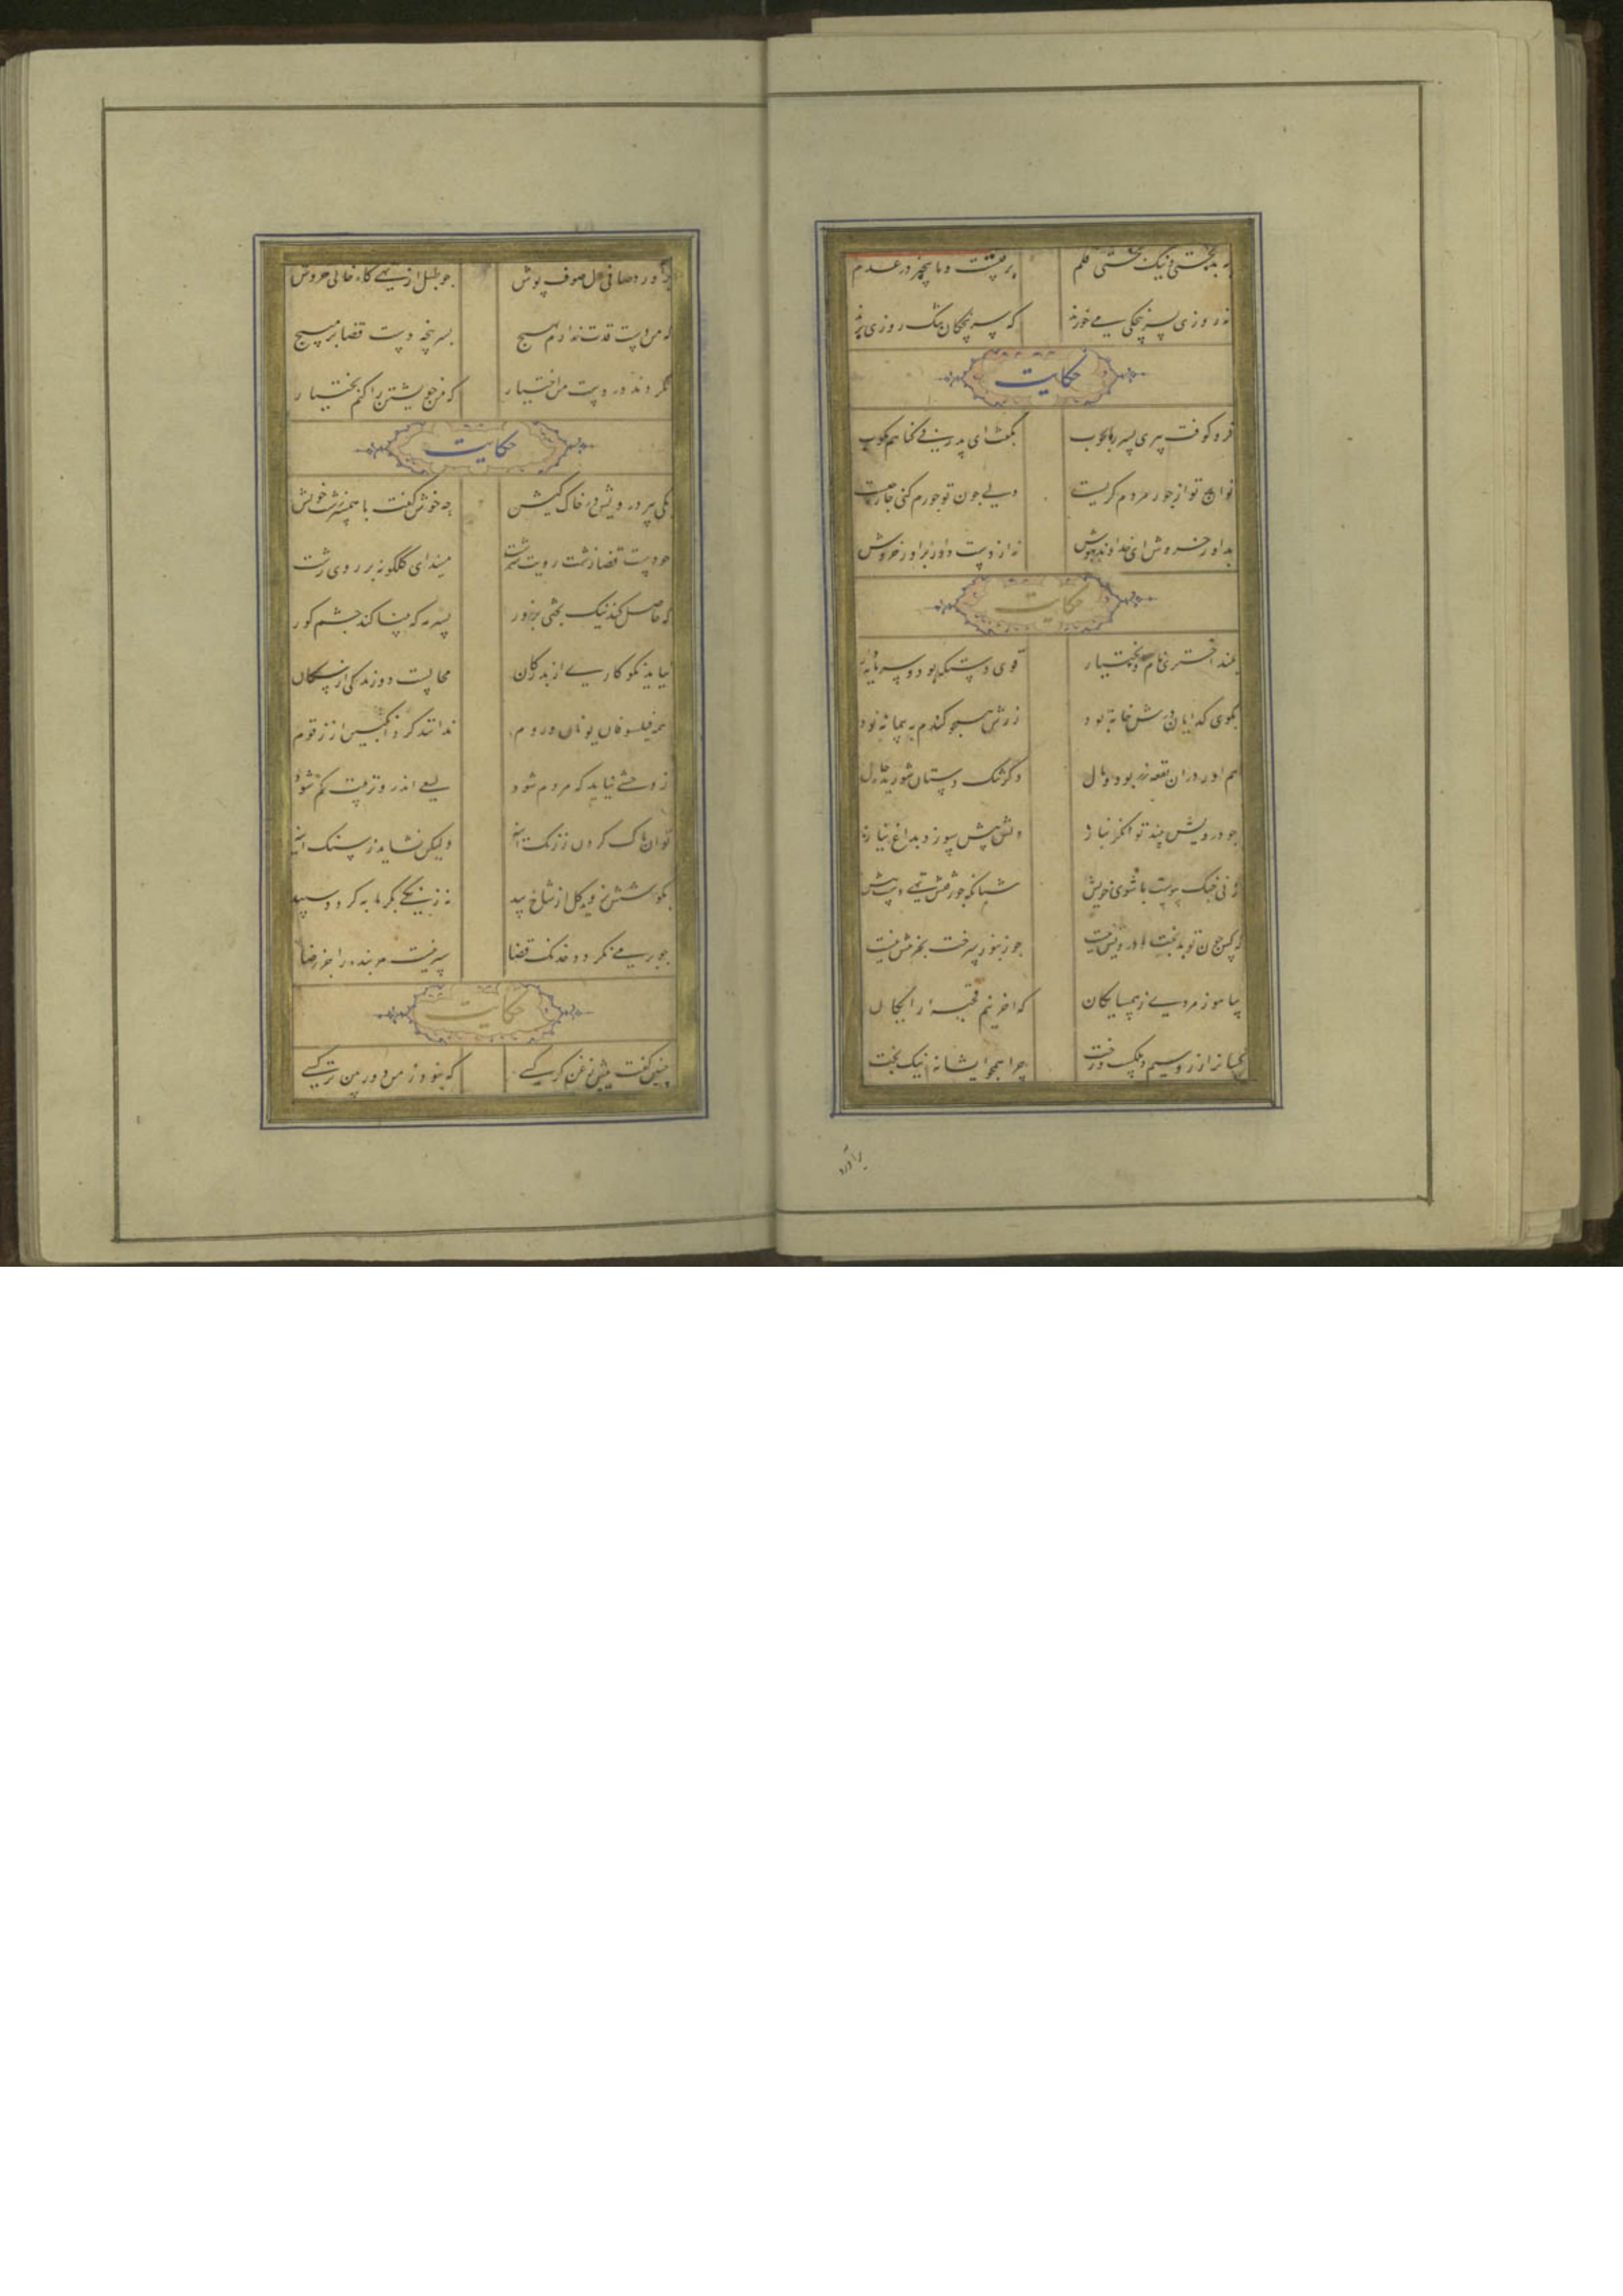 به بدبختی و نیک بختی قلم
برفتست و ما همچنان در عدم
نه روزی بسرپنجکی می خورند
که سرپنجکان تنک روزی ترند
حکایت
فرو کوفت پیری پسر را بچوب
بگفت ای پدر بی گناهم مکوب
توانم تو از جور مردم گریست
ولی چون تو جورم کنی چاره چیست
بداور خروش ای خداوند هوش
نه از دست داور برآور خروش
حکایت
بلند اختری نام او بختیار
قوی دستکه بود و سرمایه دار
بکوی کدایان درش خانه بود
زرش همچو کندم به پیمانه بود
هم او را در ان بقعه زر بود و مال
دکر تنک دستان شوریده حال
چو درویش بیند توانکر بناز
دلش بیش سوزد بداغ نیاز
زنی جنک پیوست با شوی خویش
شبانکه چو رفتش تهی دست پیش
که کس چون تو بدبخت و درویش نیست
چو زنبور سرخت نیست
بیاموز مردی ز همسایکان
که آخر نیم قحبه رایکان
کسانرا زر و سیم و ملکست و رخت
چرا همچو ایشان نه نیک بخت
برآورد
برآورد صافی دل صوف پوش
چو طبل از تهی کاه خالی خروش
که من دست قدرت ندارم بهیچ
بسرپنجه دست قضا بر مپیچ
نکردند در دست من اختیار
که من خویشتن را کنم بختیار
حکایت
یکی پیر درویش در خاک کیش
چه خوش کفت با همسر زشت خویش
چو دست قضا زشت رویت سرشت
میندای کلکونه بر روی زشت
که حاصل کند نیک بختی بزور
بسرمه که بینا کند چشم کور
نیاید نکو کاری از بد رکان
محالست دوزندکی از سکان
همه فیلسوفان یونان و روم
ندانند کرد انکبین از زقوم
ز وحشی نیاید که مردم شود
بسعی اندرو تربیت کم شود
توان پاک کردن ز زنک آینه
ولیکن نشاید ز سنک آینه
بکوشش نروید کل از شاخ بید
نه زنکی بکرمابه کردد سپید
چو رد می نکردد خدنک قضا
سپر نیست مر بنده را جز رضا
حکایت
چنین کفت پیش زغن کرکسی
که نبود ز من دور بین تر کسی